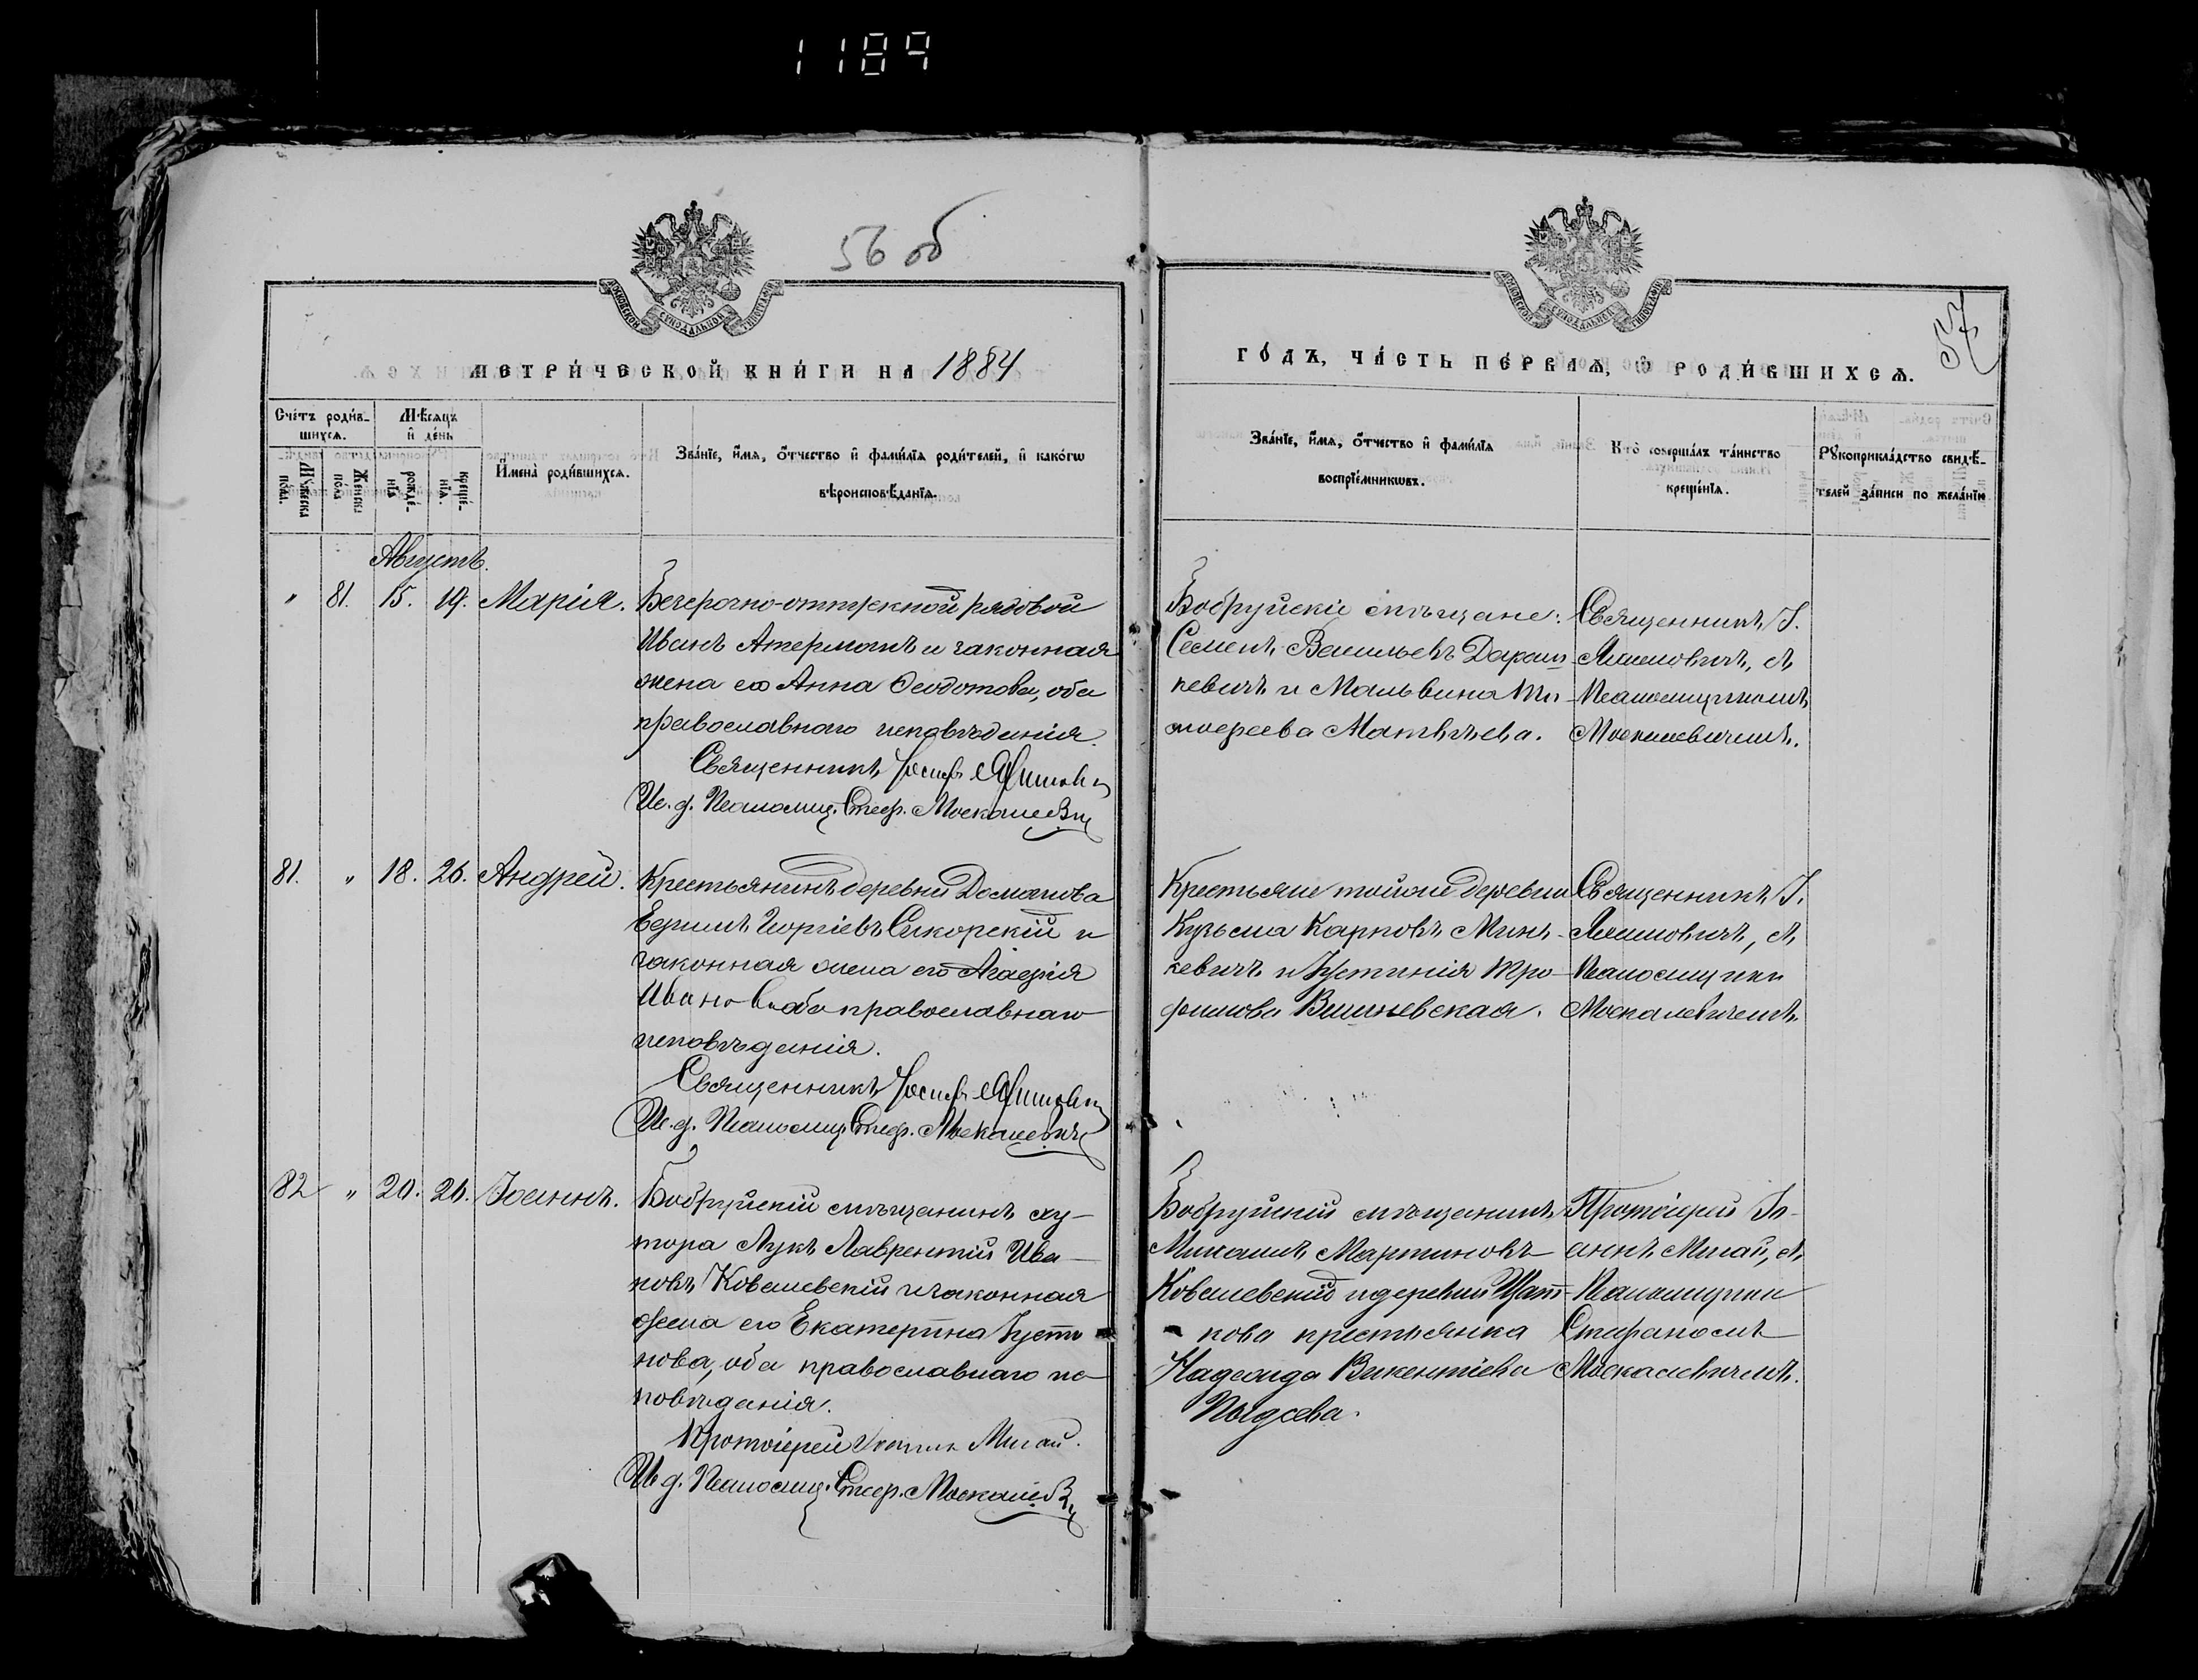 1189
56 об
57
МЕТРИЧЕСКОЙ КНИГИ НА 1884
ГОДЪ, ЧАСТЬ ПЕРВАЯ, Ѡ РОДИВШИХСЯ.
Счетъ родив-
шихся.
Мужеска
пола.
Женска
пола
Мѣсяцъ
и день
рожде-
нїя
креще-
нїя.
Имена родившихся.
Званїе, имя, отчество и фамилїя родителей, и какогѡ
вѣроисповѣданїя.
Званїе, имя, отчество и фамилїя
воспрїемникѡвъ.
Кто совершалъ таинство
крещенїя.
Рукоприкладство свидѣ-
телей записи по желанїю
Августъ.
" 81. 15. 19. Марія.
рядовой
Иванъ и законная
жена его Анна Ѳеодотова, оба
православнаго исповѣданія.
Священникъ Іосифъ
Ис. д. Псаломщ. Стеф. Москалевич
Бобруйскіе мѣщане:
Семенъ Васильевъ
кевичъ и Мальвина Ти-
моѳеева Матвѣева.
Священникъ І.
съ
Псаломщикомъ
Москалевичемъ.
81. " 18. 26. Андрей.
Крестьянинъ деревни Доманова
Ефимъ Георгіевъ Сикорскій и
законная жена его Агафія
Иванова, оба православнаго
исповѣданія.
Священникъ Іосифъ
Ис. д. Псаломщ. Стеф. Москалевичъ
Крестьяне тойже деревни
Кузьма Карповъ Минь-
кевичъ и Іустинія Тро-
фимова Вишневская.
Священникъ І.
съ
Псаломщикомъ
Москалевичемъ.
82 " 20. 26. Іоаннъ.
Бобруйскій мѣщанинъ ху-
тора Лукъ Лаврентій Ива-
новъ Ковалевскій и законная
жена его Екатерина Іусти-
нова, оба православнаго ис-
повѣданія.
Протоіерей Іоаннъ Мигай.
Ис. д. Псаломщ. Стеф. Москалевич
Бобруйскій мѣщанинъ
Михаилъ Мартиновъ
Ковалевскій и деревни
кова крестьянка
Надежда Викентіева
Протоіерей Іо-
аннъ Мигай, съ
Псаломщикомъ
Стефаномъ
Москалевичемъ.